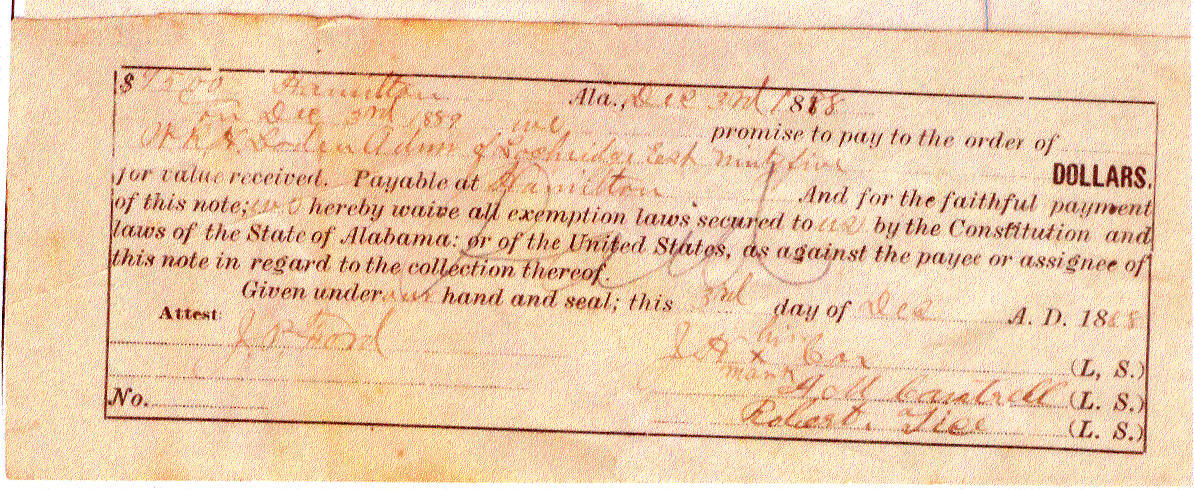 $ 95.00 Hamilton Ala., Dec 3rd 1888
On Dec 3rd 1889 we promise to pay to the order of
W. R. H. Loden Admr of Lochridge Est Ninty five DOLLARS.
for value received. Payable at Hamilton And for the faithful payment
of this note; we hereby waive all exemption laws secured to us by the Constitution and
laws of the State of Alabama: or of the United States, as against the payee or assignee of
this note in regard to the collection thereof.
Given under our hand and seal; this 3rd day of Dec A. D. 1888
Attest:
J. P. Ford
his
J A x Cox (L, S.)
mark
Cantrell (L. S.)
No.
Robert Tice (L. S.)